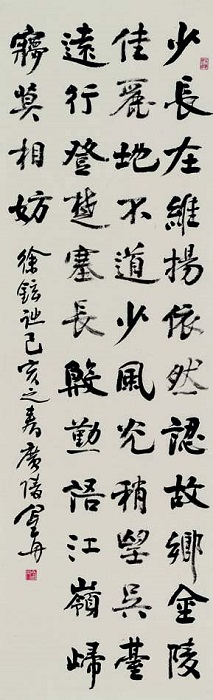 少長在維揚依然認故鄉金陵
佳麗地不道少風光稍望吳臺
遠行登楚塞長殷勤語江嶺歸
夢莫相妨徐鉉詩己亥之春廣